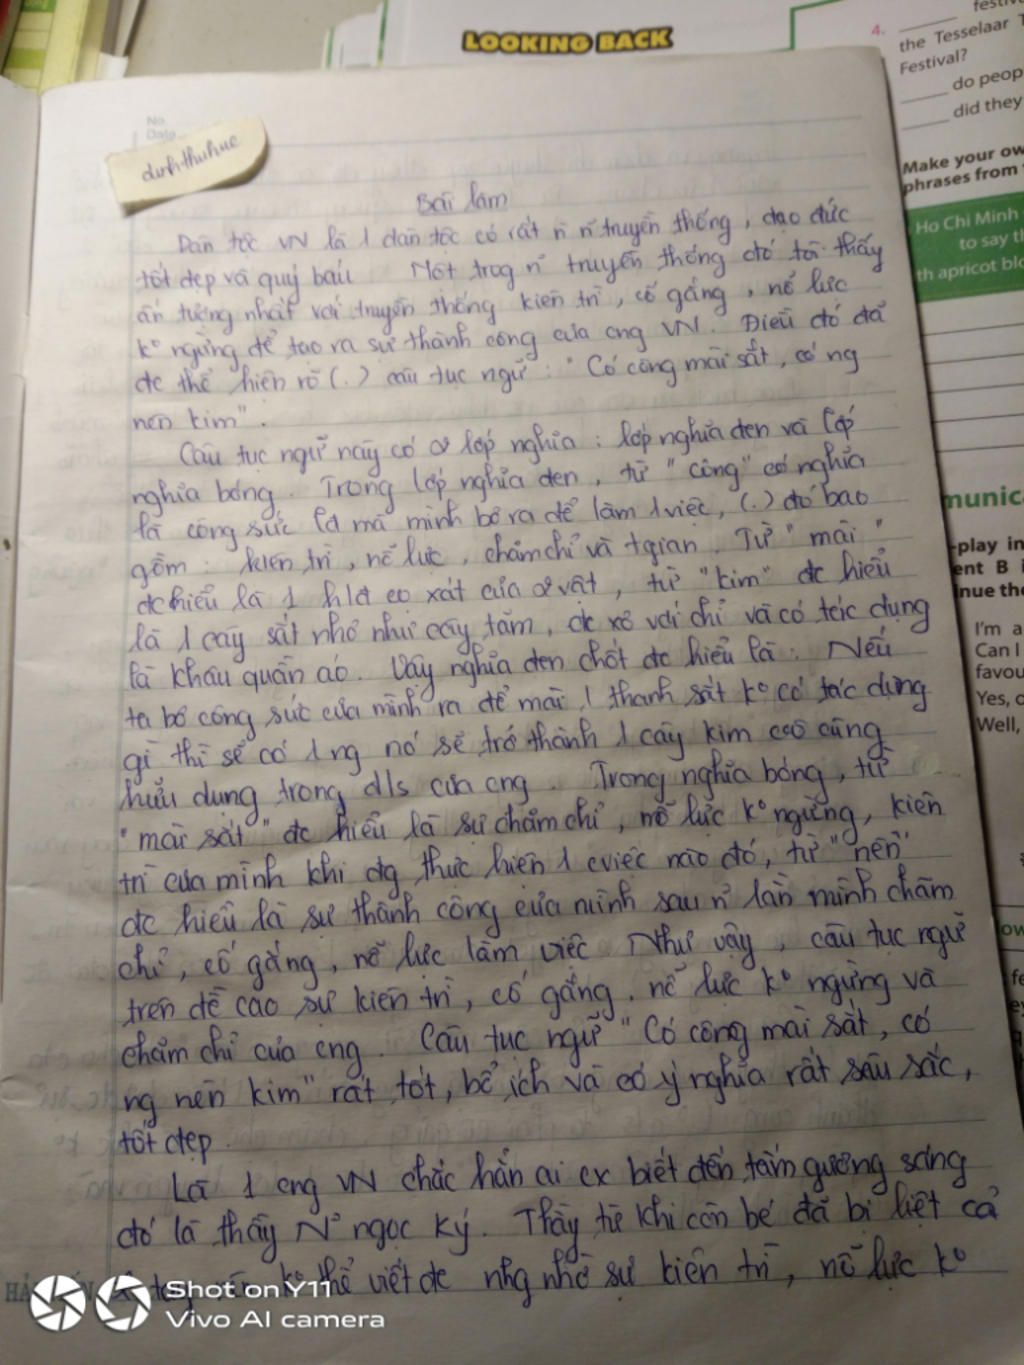 LOOKING BACK
4. festiv
the Tesselaar T
Festival?
do peop
did they
Make your ow
phrases from
Ho Chi Minh
to say th
th apricot blo
munic
-play in
ent B i
nue the
I'm a
Can I
favou
Yes, c
Well,
No.
Date
dinhthuhue
Bài làm
Dân tộc VN là 1 dân tộc có rất n n' truyền thống, đạo đức
tốt đẹp và quý báu Một trog n' truyền thống đó tôi thấy
ấn tượng nhất với truyền thống kiên trì, cố gắng, nổ lực
k° ngừng để tạo ra sự thành công của cng VN. Điều đó đã
đc thể hiện rõ (.) câu tục ngữ: "Có công mài sắt, có ng
nên kim".
Câu tục ngữ này có 2 lớp nghĩa: lớp nghĩa đen và lớp
nghĩa bóng. Trong lớp nghĩa đen, từ "công" có nghĩa
là công sức lđ mà mình bỏ ra để làm 1 việc, (.) đó bao
gồm: kiên trì, nổ lực, chăm chỉ và tgian. Từ "mài"
đc hiểu là 1 hđ cọ xát của 2 vật, từ "kim" đc hiểu
là 1 cây sắt nhỏ như cây tăm, đc xỏ với chỉ và có tác dụng
là khâu quần áo. Vậy nghĩa đen chốt đc hiểu là: Nếu
ta bỏ công sức của mình ra để mài 1 thanh sắt k° có tác dụng
gì thì sẽ có 1 ng nó sẽ trở thành 1 cây kim vô cùng
hữu dụng trong đ/s của cng. Trong nghĩa bóng, từ
"mài sắt" đc hiểu là sự chăm chỉ, nổ lực k° ngừng, kiên
trì của mình khi đg thực hiện 1 cviệc nào đó, từ "nên"
đc hiểu là sự thành công của mình sau n' lần mình chăm
chỉ, cố gắng, nổ lực làm việc Như vậy, câu tục ngữ
trên đề cao sự kiên trì, cố gắng, nổ lực k° ngừng và
chăm chỉ của cng. Câu tục ngữ "Có công mài sắt, có
ng nên kim" rất tốt, bổ ích và có ý nghĩa rất sâu sắc,
tốt đẹp.
Là 1 cng VN chắc hẳn ai cx biết đến tấm gương sáng
đó là thầy N° ngọc Ký. Thầy từ khi còn bé đã bị liệt cả
k° thể viết đc nhg nhờ sự kiên trì, nổ lực k°
Shot on Y11
Vivo AI camera